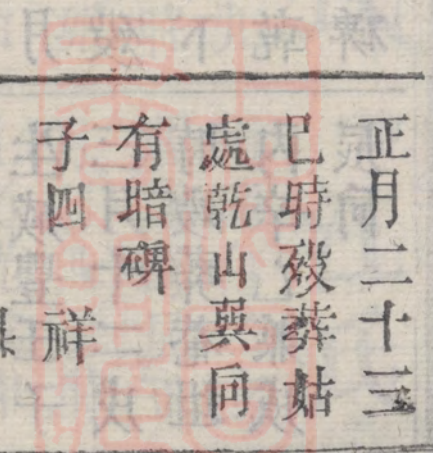 正月二十三
巳時殁葬姑
處乾山巽向
有暗碑
子四　祥